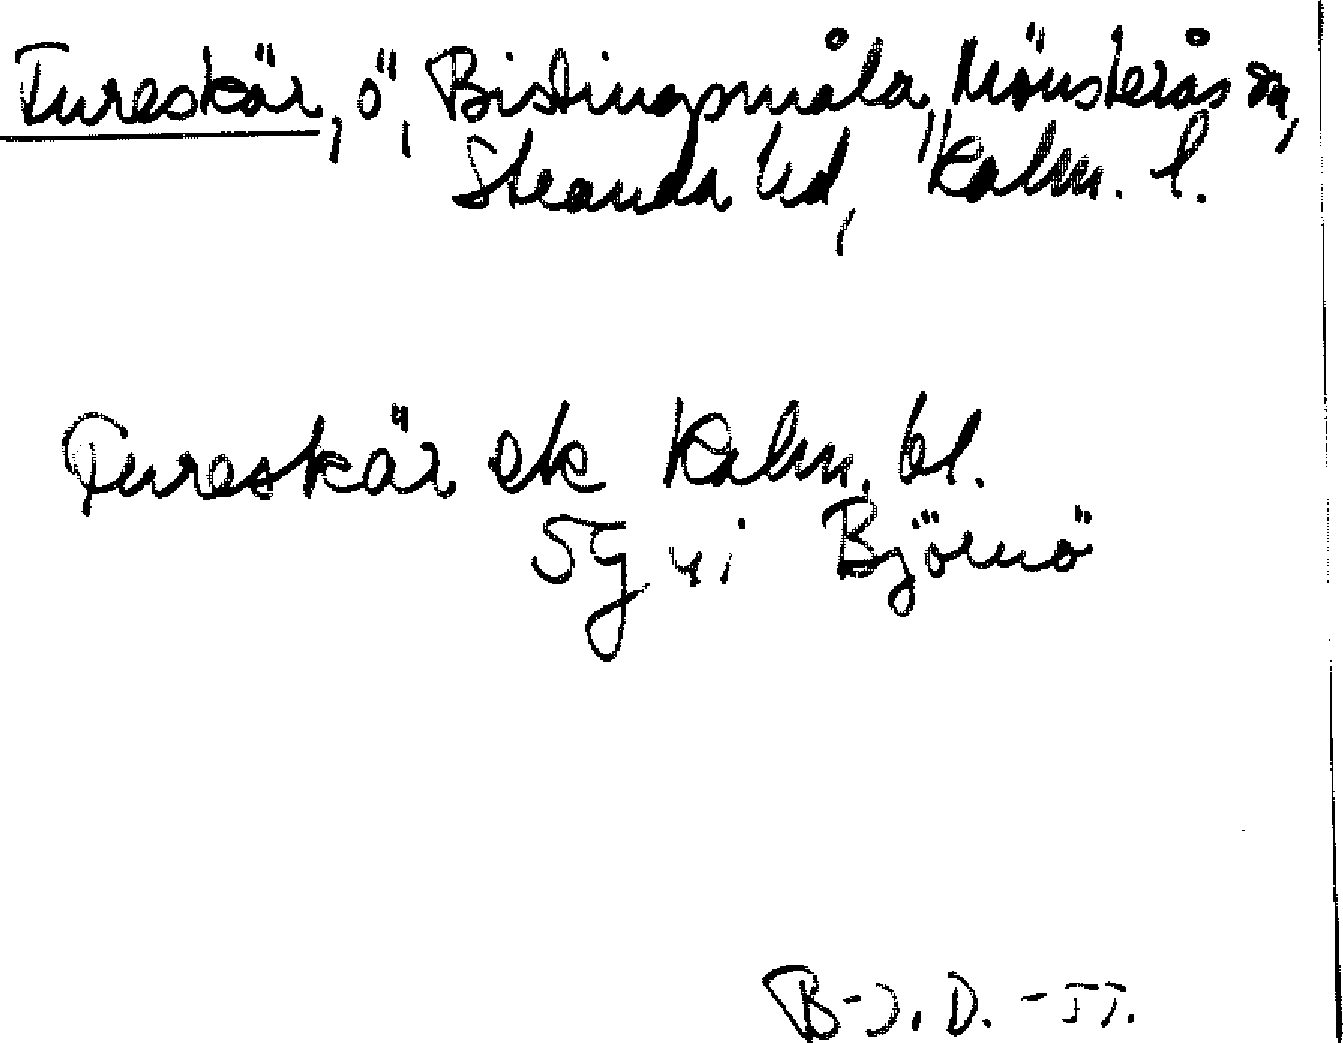 Tureskär, ö, Bistingsmåla, Mönsterås sn,
Stranda hd, Kalm. l.
Tureskär ek Kalm. bl.
5g vi Björnö
B-J. D. -57.